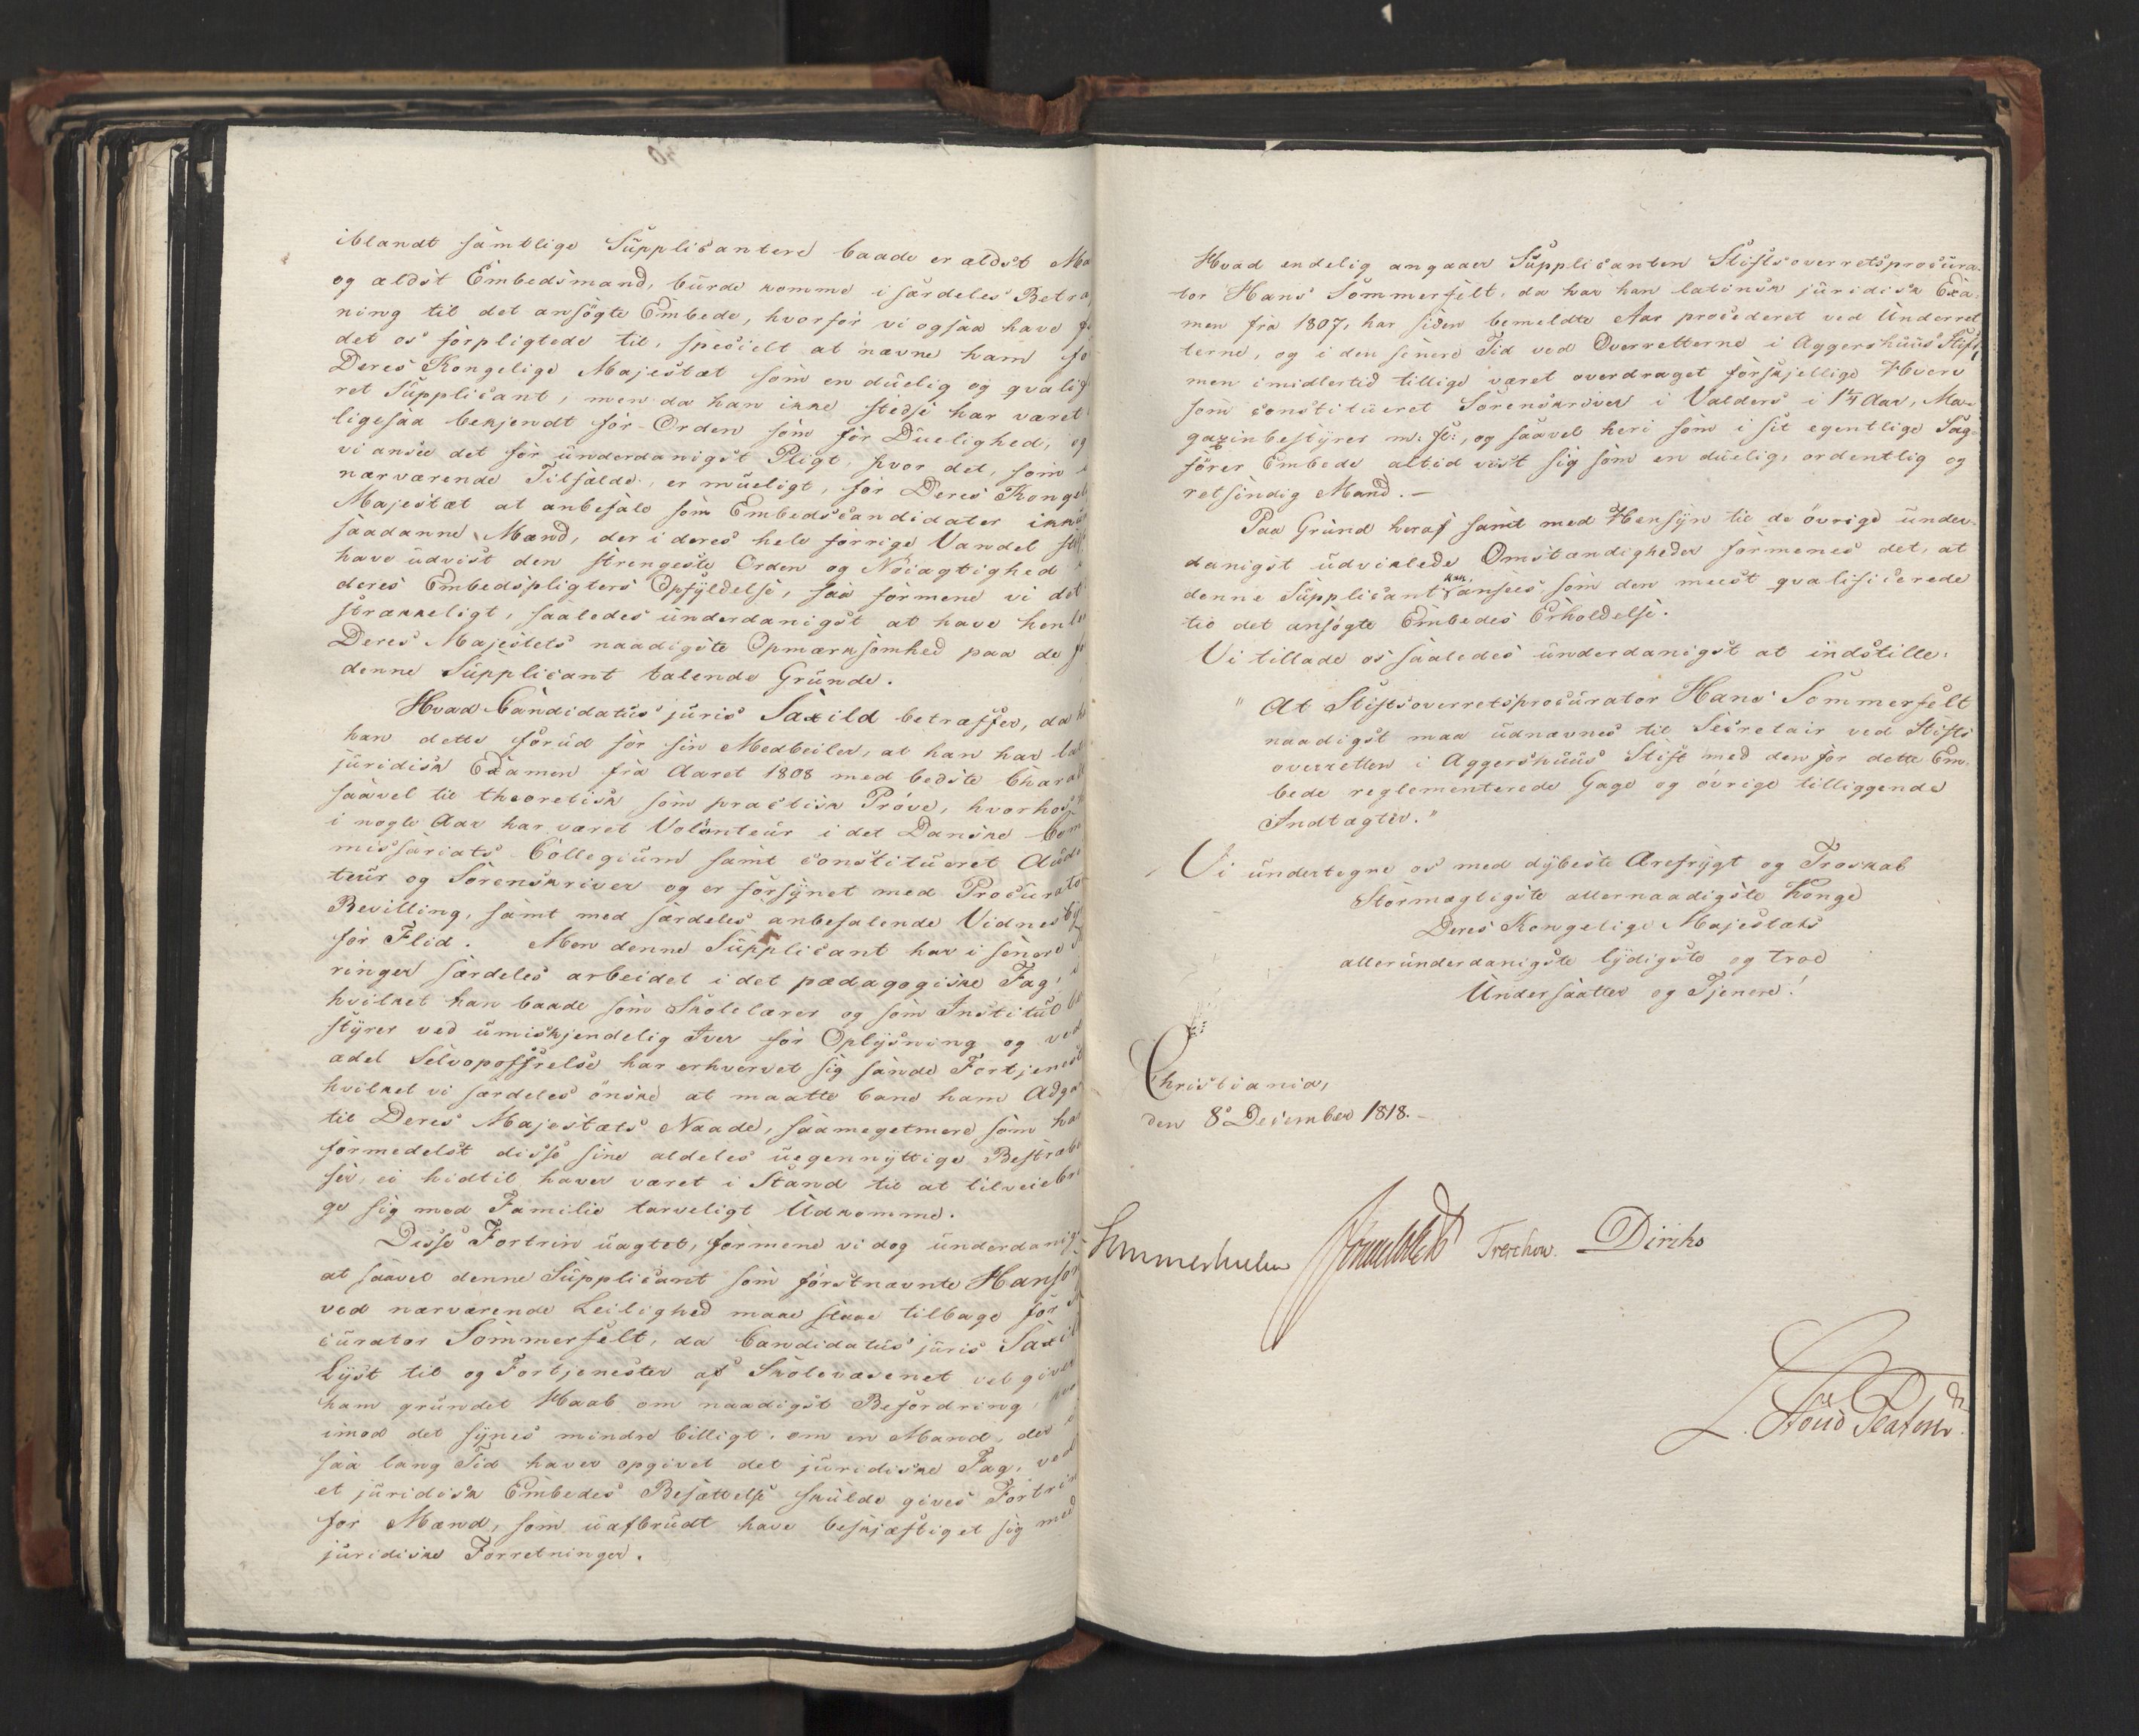 iblandt samtlige Supplicantere baade er ældst
og ældst Embedsmand, burde komme i særdeles
ning til det ansøgte Embede, hvorfor vi ogsaa have
det os forpligtede til, specielt at nævne ham
Deres Kongelige Majestæt som en duelig og
ret Supplicant, men da han ikke stedse har været
ligesaa bekjendt for Orden som for Duelighed, og
vi ansee det for underdanigst Pligt, hvor det, som
nærværende Tilfælde, er mueligt, for Deres
Majestæt at anbefale som Embedscandidater
saadanne Mænd, der i deres hele forrige Vandel
have udvist den strengeste Orden og Nøiagtighed
deres Embedspligters Opfyldelse, saa formene vi det
strækkeligt, saaledes underdanigst at have
Deres Majestets naadigste Opmærksomhed paa de
denne Supplicant talende Grunde.
Hvad Candidatus juris Saxild betræffer, da
han dette forud for sin Medbeiler, at han har
juridisk Examen fra Aaret 1808 med bedste
saavel til theoretisk som practisk Prøve,
i nogle Aar har været Volonteur i det Danske Com
missariats Collegium samt constitueret Audi
teur og Sorenskriver og er forsynet med
Bevilling, samt med særdeles anbefalende
for Flid. Men denne Supplicant har i senere
ringer særdeles arbeidet i det pædagogiske Fag,
hvilket han baade som Skolelærer og som
styrer ved umiskjendelig Iver for Oplysning og ved
ædel Selvopoffrelse har erhvervet sig sande
hvilket vi særdeles ønske at maatte bane ham
til Deres Majestæts Naade, saameget mere som
formedelst disse sine aldeles uegennyttige
ser, ei hidtil haver været i Stand til at
ge sig med Familie tarveligt Udkomme.
Disse Fortrin uagtet, formene vi dog
at saavel denne Supplicant som førstnævnte
ved nærværende Leilighed maae staae tilbage for
curator Sommerfelt, da Candidatus juris
Lyst til og Fortjenester af Skolevæsenet vel giver
ham grundet Haab om naadigst Befordring,
imod det synes mindre billigt, om en Mand, der
saa lang Tid haver opgivet det juridiske Fag, ved
et juridisk Embedes Besættelse skulde gives Fortrin
for Mænd, som uafbrudt have beskjæftiget sig med
juridiske Forretninger.
Hvad endelig angaaer Supplicanten Stiftsoverretsprocura-
tor Hans Sommerfelt, da har han latinsk juridisk Exa-
men fra 1807, har siden bemeldte Aar procederet ved Underret
terne, og i den senere Tid ved Overretterne i Aggershuus Stift,
men imidlertid tillige været overdraget forskjellige Hverv
som constitueret Sorenskriver i Valders i 1 1/4 Aar, Ma-
gazinbestyrer m: fl:, og saavel heri som i sit egentlige Sag-
fører Embede altid viist sig som en duelig, ordentlig og
retsindig Mand.—
Paa Grund heraf samt med Hensyn til de øvrige under-
danigst udviklede Omstændigheder formenes det, at
denne Supplicant kan ansees som den meest qvalificerede
til det ansøgte Embedes Erholdelse.
Vi tillade os saaledes underdanigst at indstille:
"At Stiftsoverretsprocurator Hans Sommerfelt
naadigst maa udnævnes til Secretair ved Stifts
overretten i Aggershuus Stift med den for dette Em-
bede reglementerede Gage og øvrige tilliggende
Indtægter."
Vi undertegne os med dybeste Ærefrygt og Troskab
Stormægtigste allernaadigste Konge
Deres Kongelige Majestæts
allerunderdanigste lydigste og troe
Undersaatter og Tjenere!
Christiania,
den 8de December 1818.-
Sommerhielm Treschow. Diriks